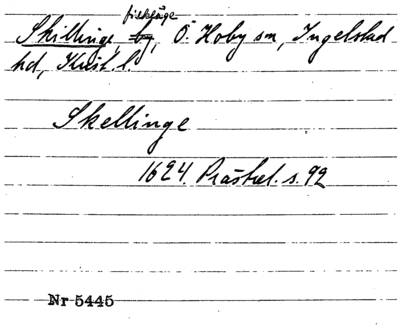 fiskläge
Skillinge, by, Ö. Hoby sn, Ingelstad
hd, Krist. l.
Skellinge
1624 Prästrel. s. 92
Nr 5445